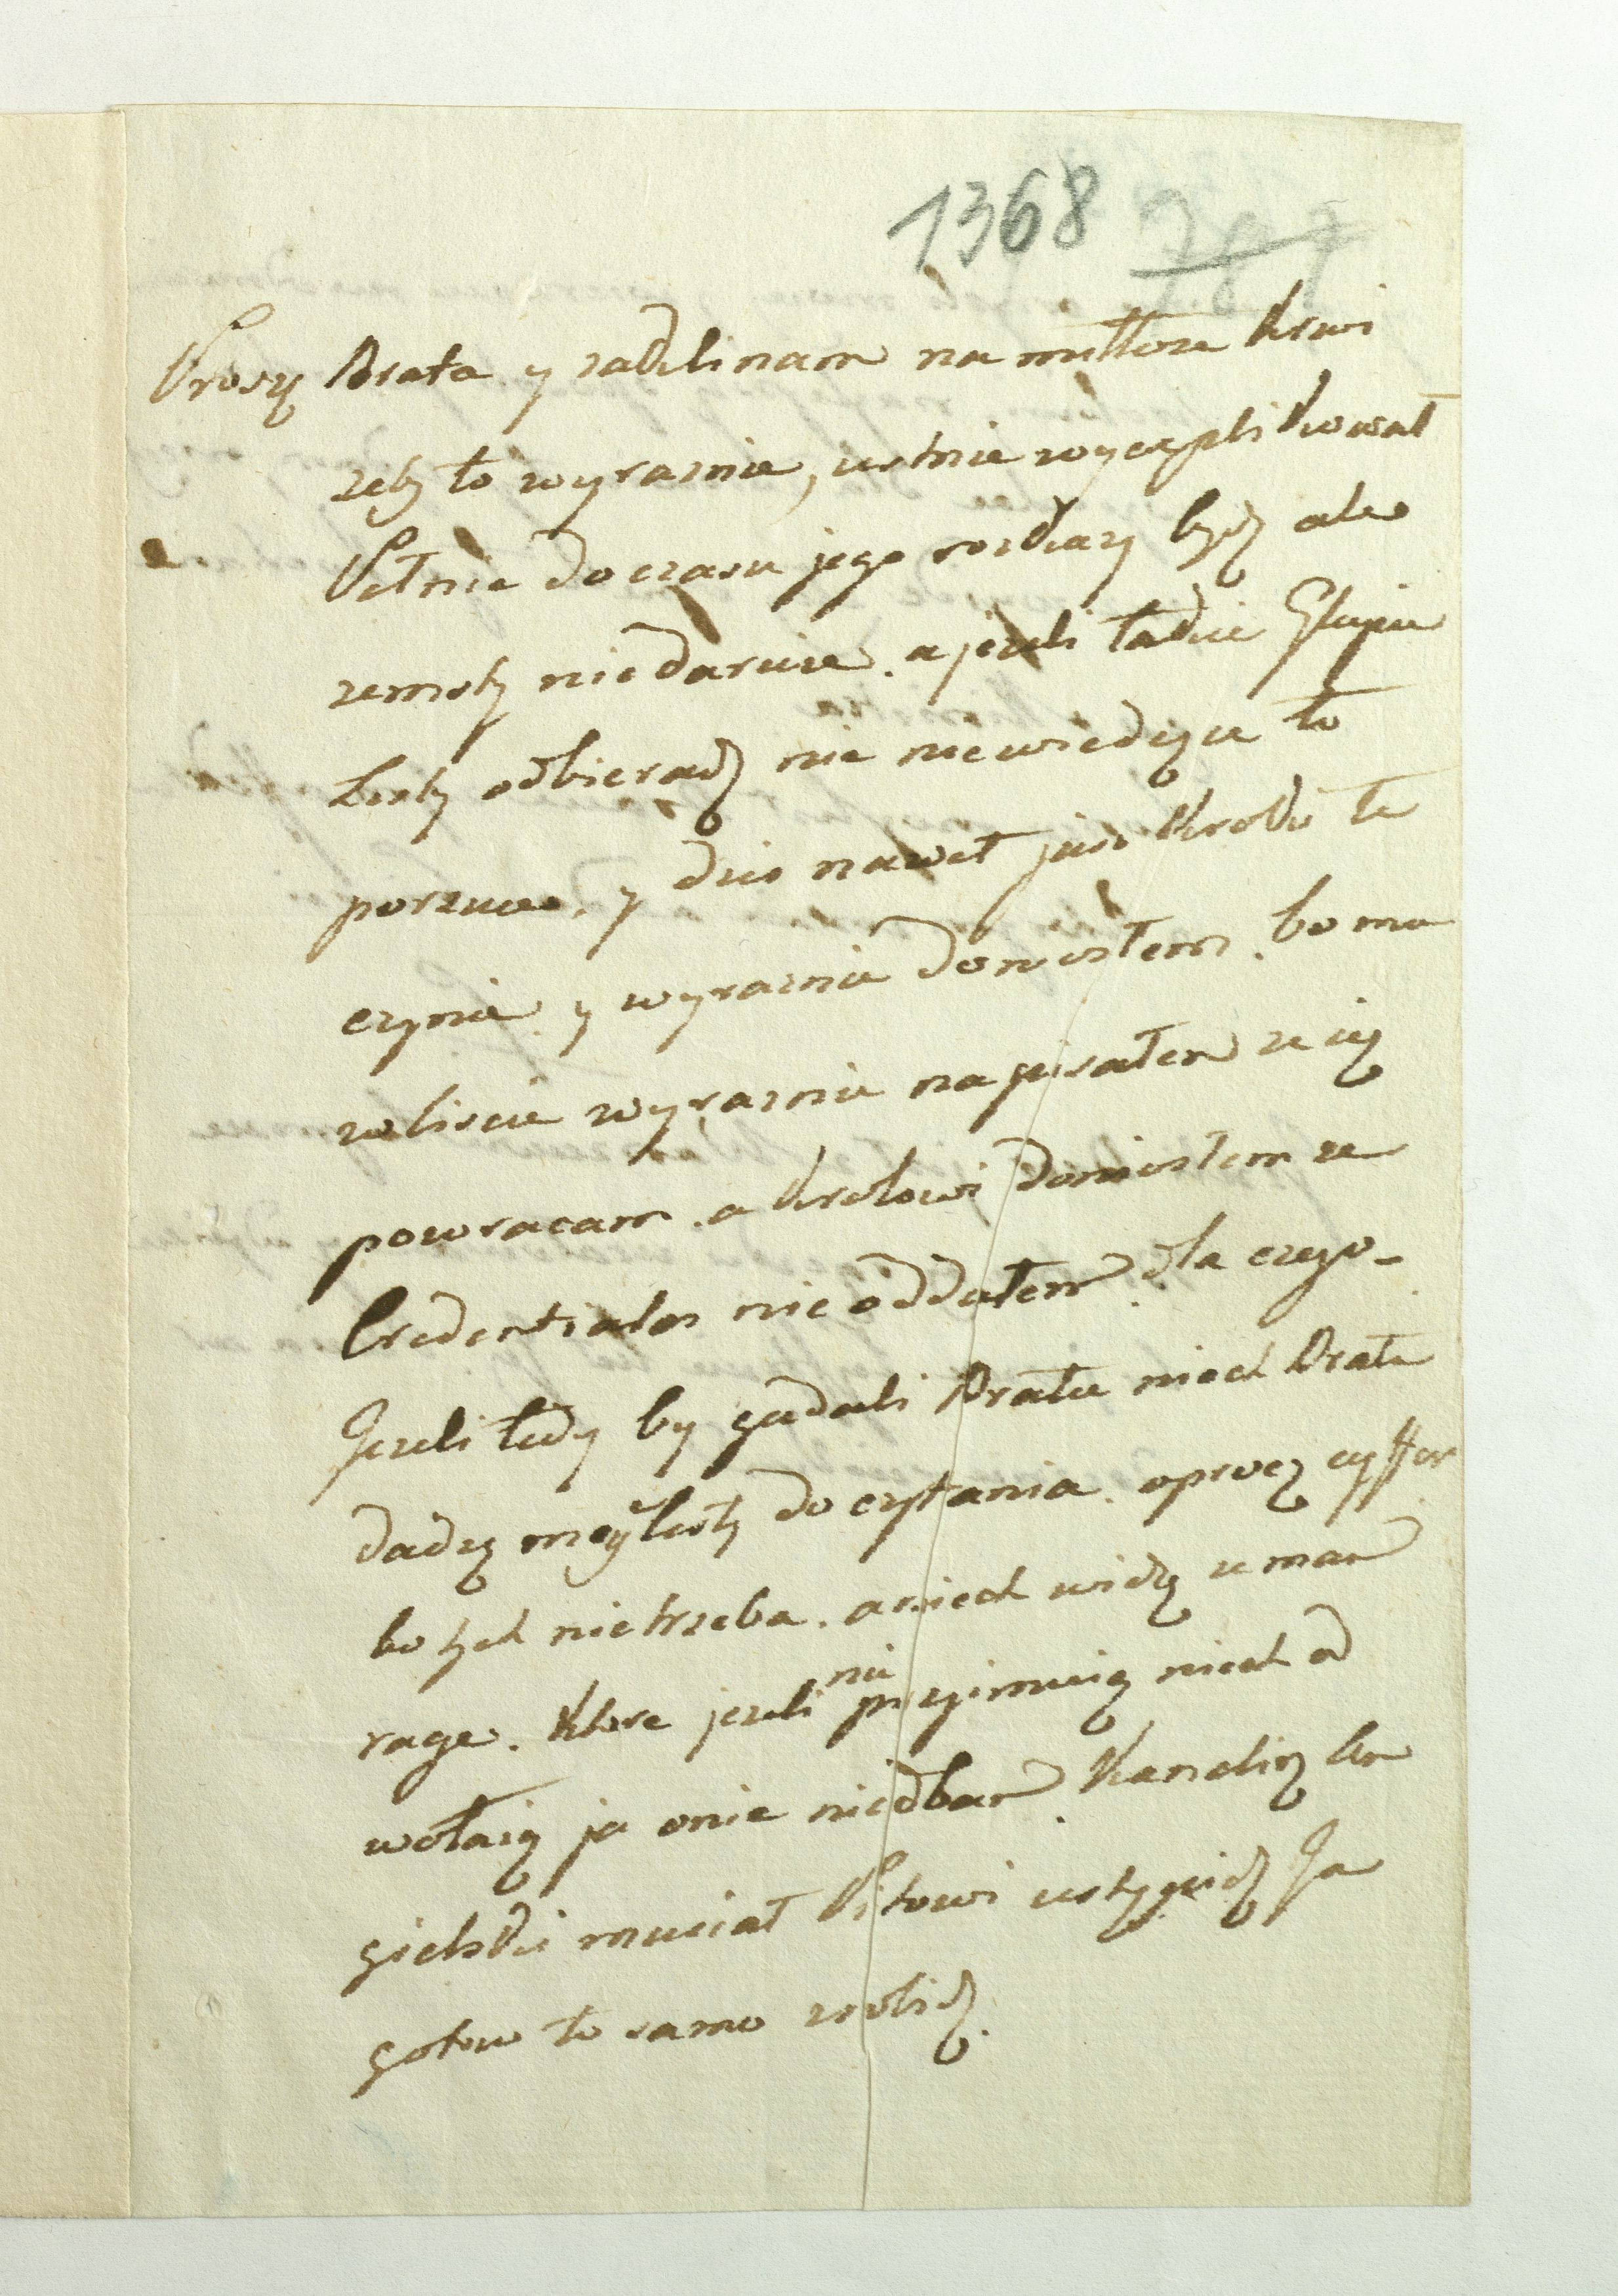 1368 787
Proszę Brata y zaklinam na miłłosc krwi
zeby to wyraznie, ustnie wyexplikował
Pełnie do czasu jego roskazy bydz ale
zemsty nie daruie. a jezeli takie Głupie
Listy odbieradz nie niewiedzące to
porzuce. y dzis nawet juz kroki te
czynie. y wyraznie doniosłem. bo ma
w liscie wyraznie napisałem ze ię
powracam. a krolowi doniosłem ze
Credentiales nie oddałem. dla czego -
Jezeli tedy by gadali Bratu niech Bratu
dadzą moy Listy do czytania. oprocz cyffer
bo tych nie trzeba. a niech widzą ze mam
rage. ktore jezeli nie przyimuią niech od
wołaią ja o nie niedbam. Kanclerz An
gielski musiał Pitowi ustąpidz Ja
gotow to samo zrobidz.